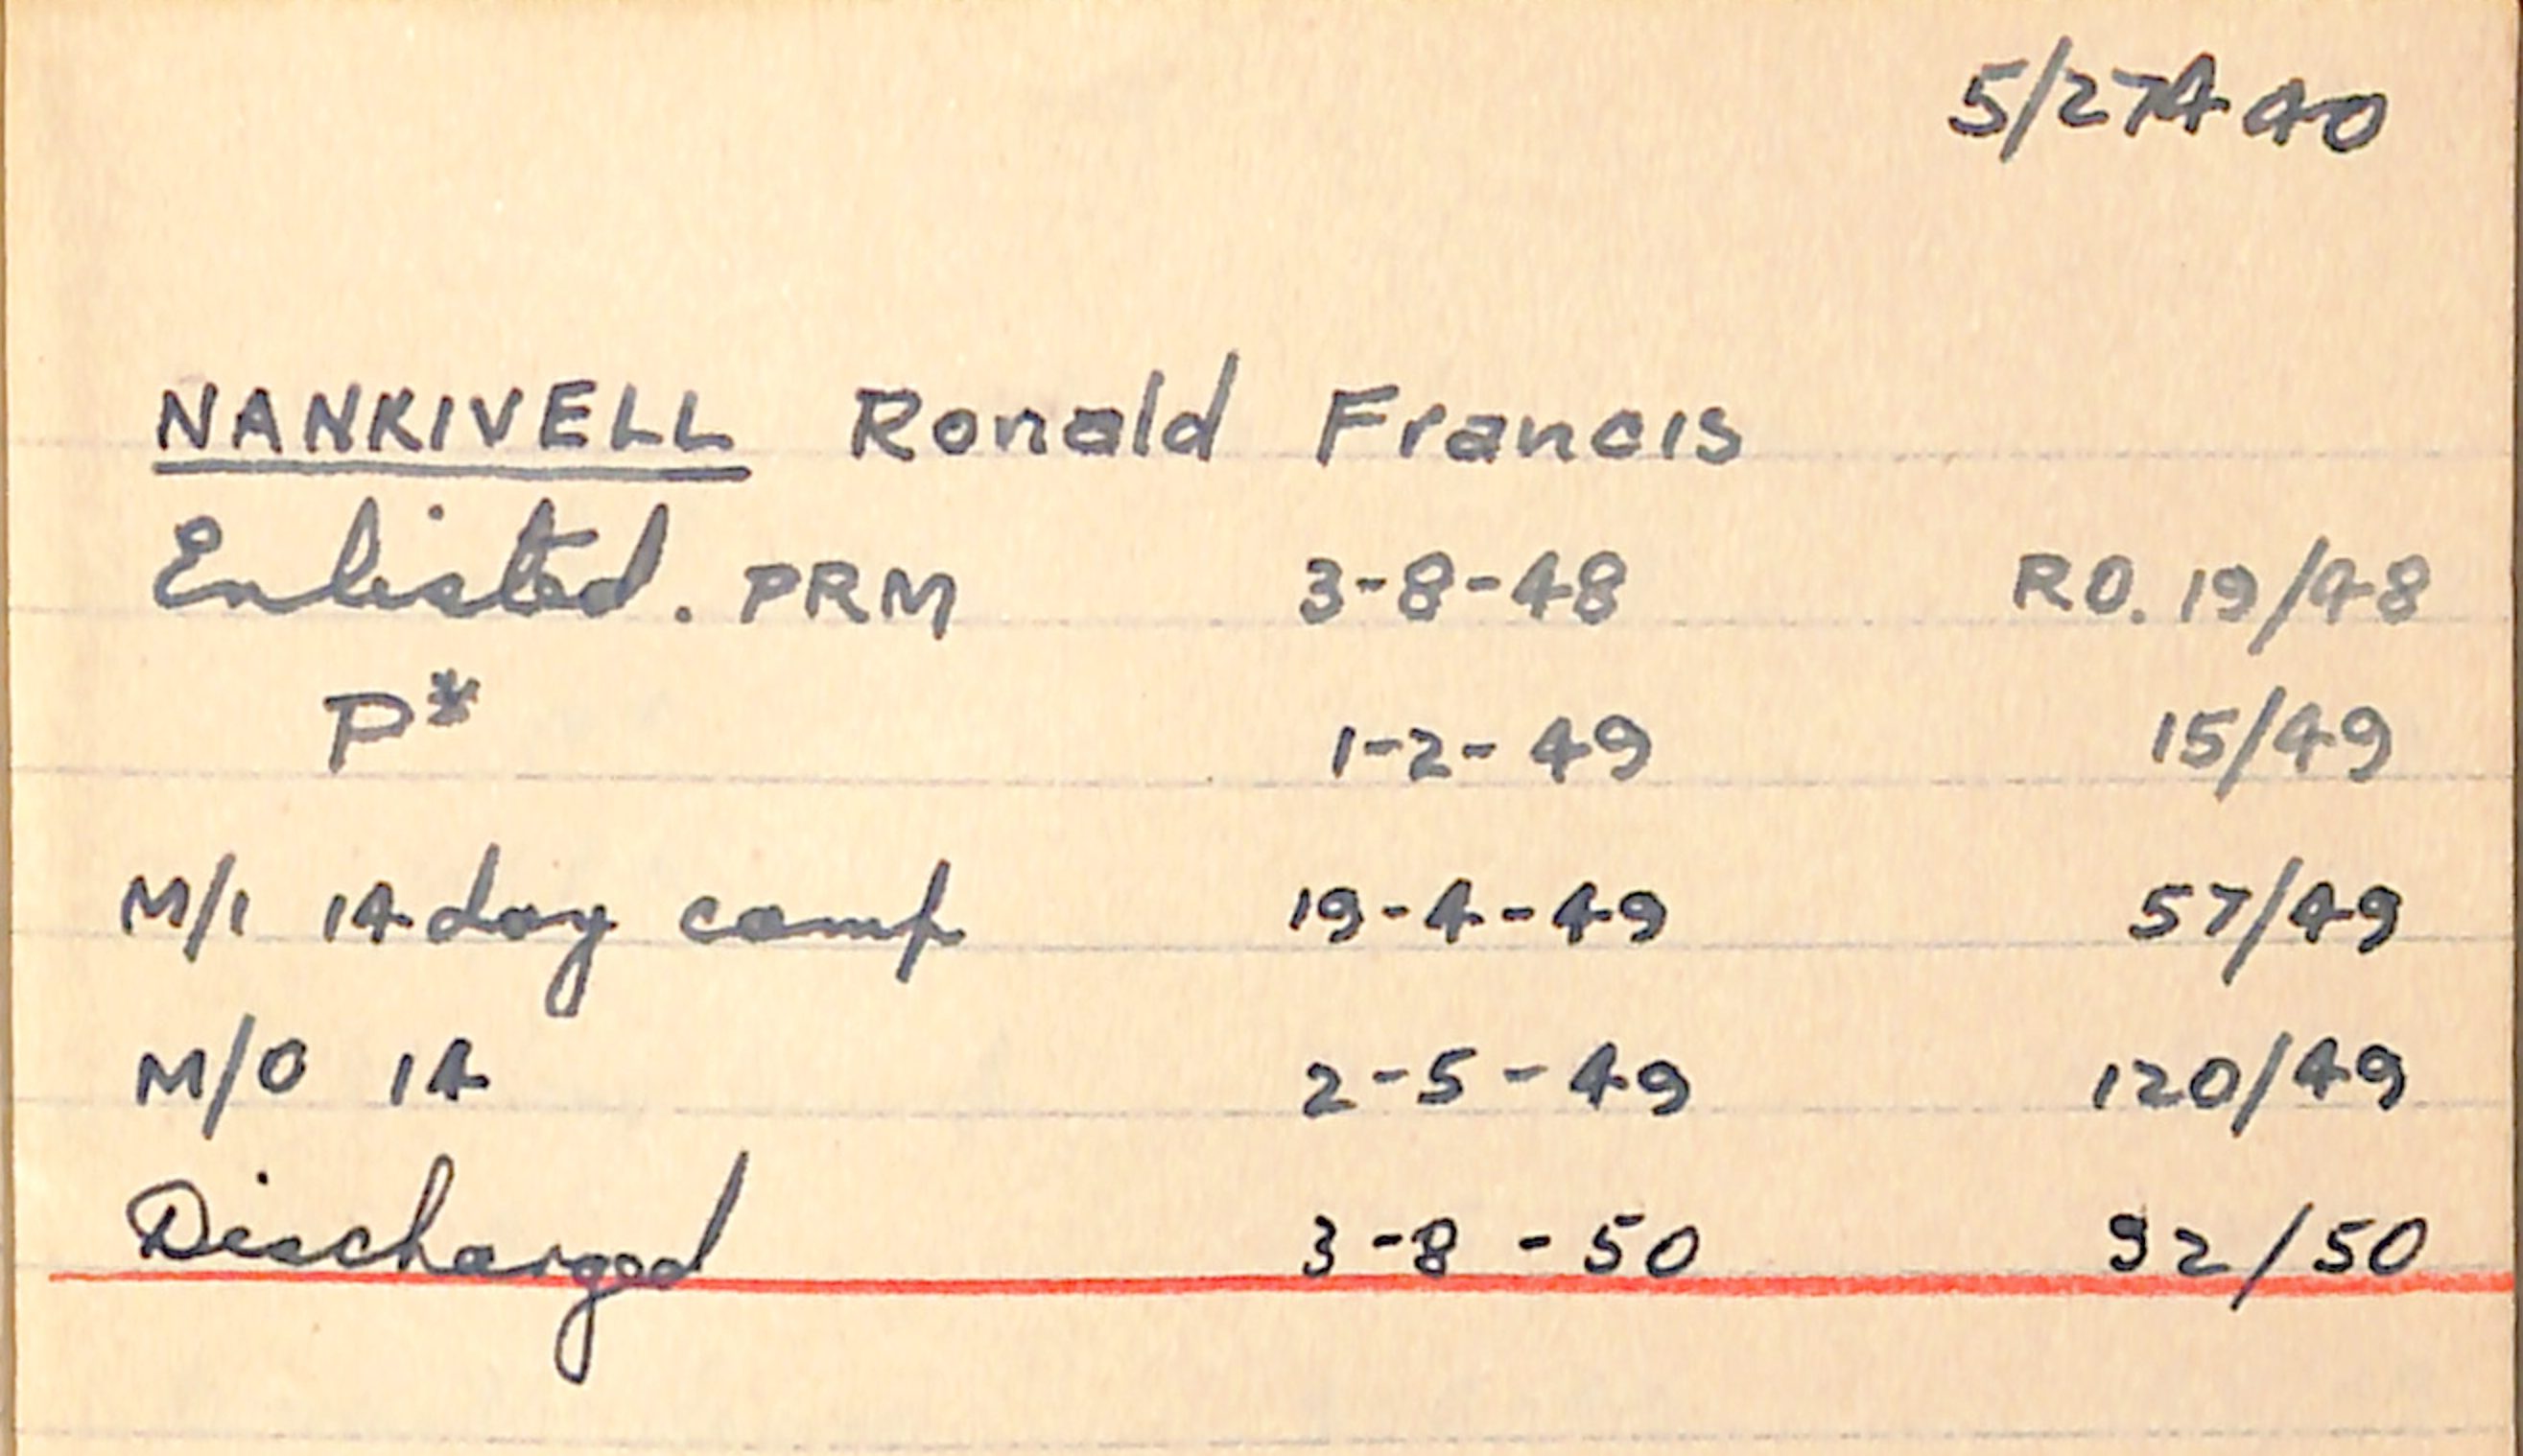 5/27440
NANKIVELL Ronald Francis
Enlisted. PRM 3-8-48 RO. 19/48
P* 1-2-49 15/49
M/I 14 day camp 19-4-49 57/49
M/O 14 2-5-49 120/49
Discharged 3-8-50 92/50